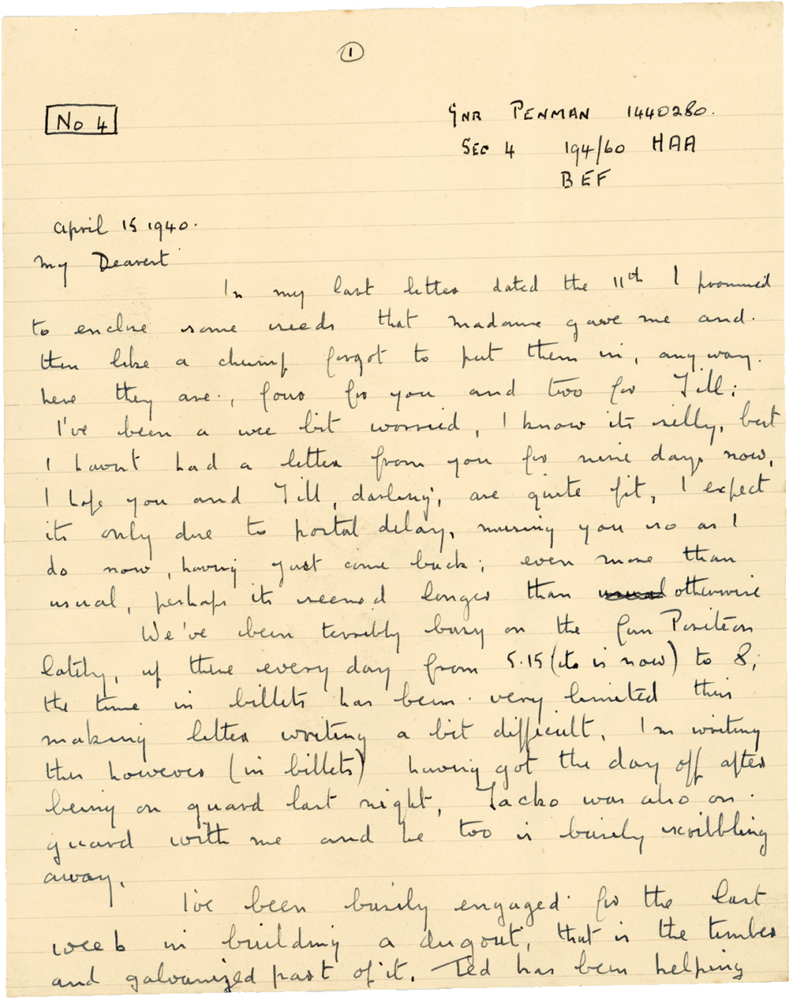 1
No 4
Gnr Penman 1440280.
Sec 4 194/60 HAA
BEF
April 15 1940.
My Dearest
In my last letter dated the 11th I promised
to enclose some seeds that madame gave me and
then like a chump forgot to put them in, anyway.
here they are, four for you and two for Jill;
I've been a wee bit worried, I know its silly, but
I havnt had a letter from you for nine days now,
I hope you and Jill, darling, are quite fit, I expect
its only due to postal delay, missing you so as I
do now, having just come back; even more than
usual, perhaps its seemed longer than usual otherwise
We've been terribly busy on the Gun Position
lately, up there every day from 5.15 (its is now) to 8;
the time in billets has been very limited this
making letter writing a bit difficult, I'm writing
this however (in billets) having got the day off after
being on guard last night, Jacko was also on
guard with me and he too is busily scribbling
away.
I've been busily engaged for the last
week in building a dugout, that is the timber
and galvanized part of it. Ted has been helping